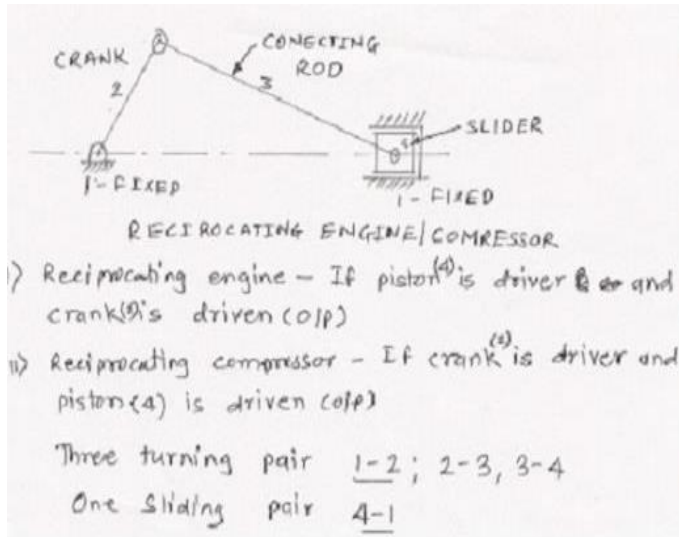 CRANK
CONECTING
ROD
2
3
4
SLIDER
1-FIXED
1-FIXED
RECIROCATING ENGINE/COMRESSOR
i) Reciprocating engine - If piston(4) is driver & or and
crank(2) is driven (o/p)
ii) Reciprocating compressor - If crank(2) is driver and
piston (4) is driven (o/p)
Three turning pair 1-2; 2-3, 3-4
One Sliding pair 4-1